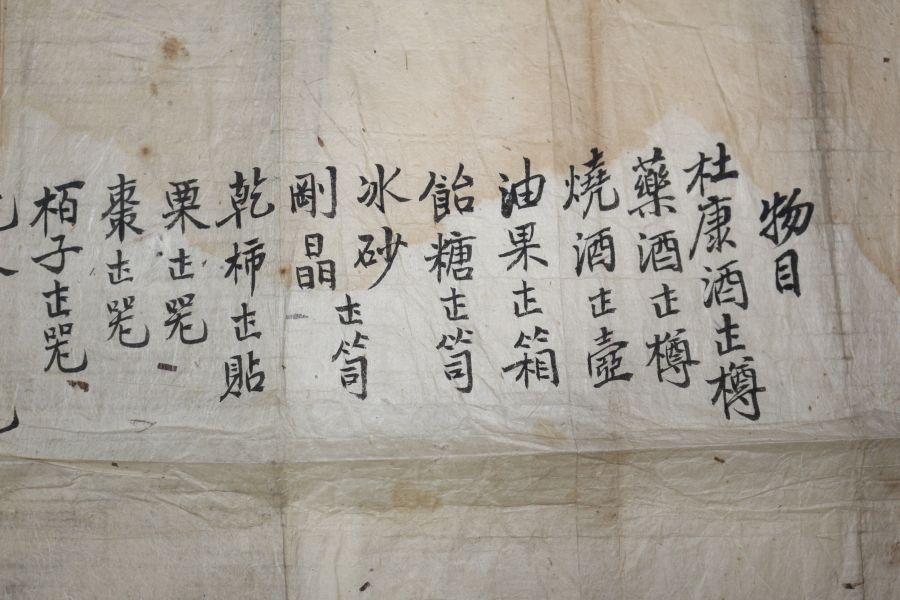 物目
杜康酒壹樽
藥酒壹樽
燒酒壹壺
油果壹箱
飴糖壹笥
冰砂
剛晶
壹笥
乾柿壹貼
栗壹器
棗壹器
栢子壹器